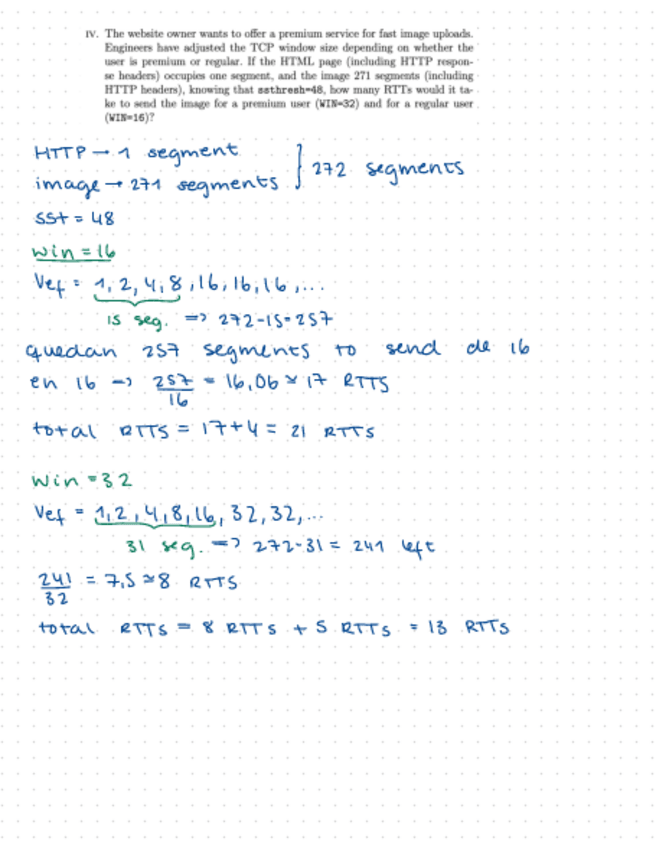 IV. The website owner wants to offer a premium service for fast image uploads.
Engineers have adjusted the TCP window size depending on whether the
user is premium or regular. If the HTML page (including HTTP respon-
se headers) occupies one segment, and the image 271 segments (including
HTTP headers), knowing that ssthresh=48, how many RTTs would it ta-
ke to send the image for a premium user (WIN=32) and for a regular user
(WIN=16)?
HTTP → 1 segment
image → 271 segments } 272 segments
SSt = 48
Win = 16
Vef = 1, 2, 4, 8, 16, 16, 16, ...
15 seg. => 272-15=257
quedan 257 segments to send de 16
en 16 => 257/16 = 16,06 ≃ 17 RTTS
total RTTS = 17+4 = 21 RTTS
Win = 32
Vef = 1, 2, 4, 8, 16, 32, 32, ...
31 seg. => 272-31 = 241 left
241/32 = 7,5 ≃ 8 RTTS
total RTTS = 8 RTTS + 5 RTTS = 13 RTTS